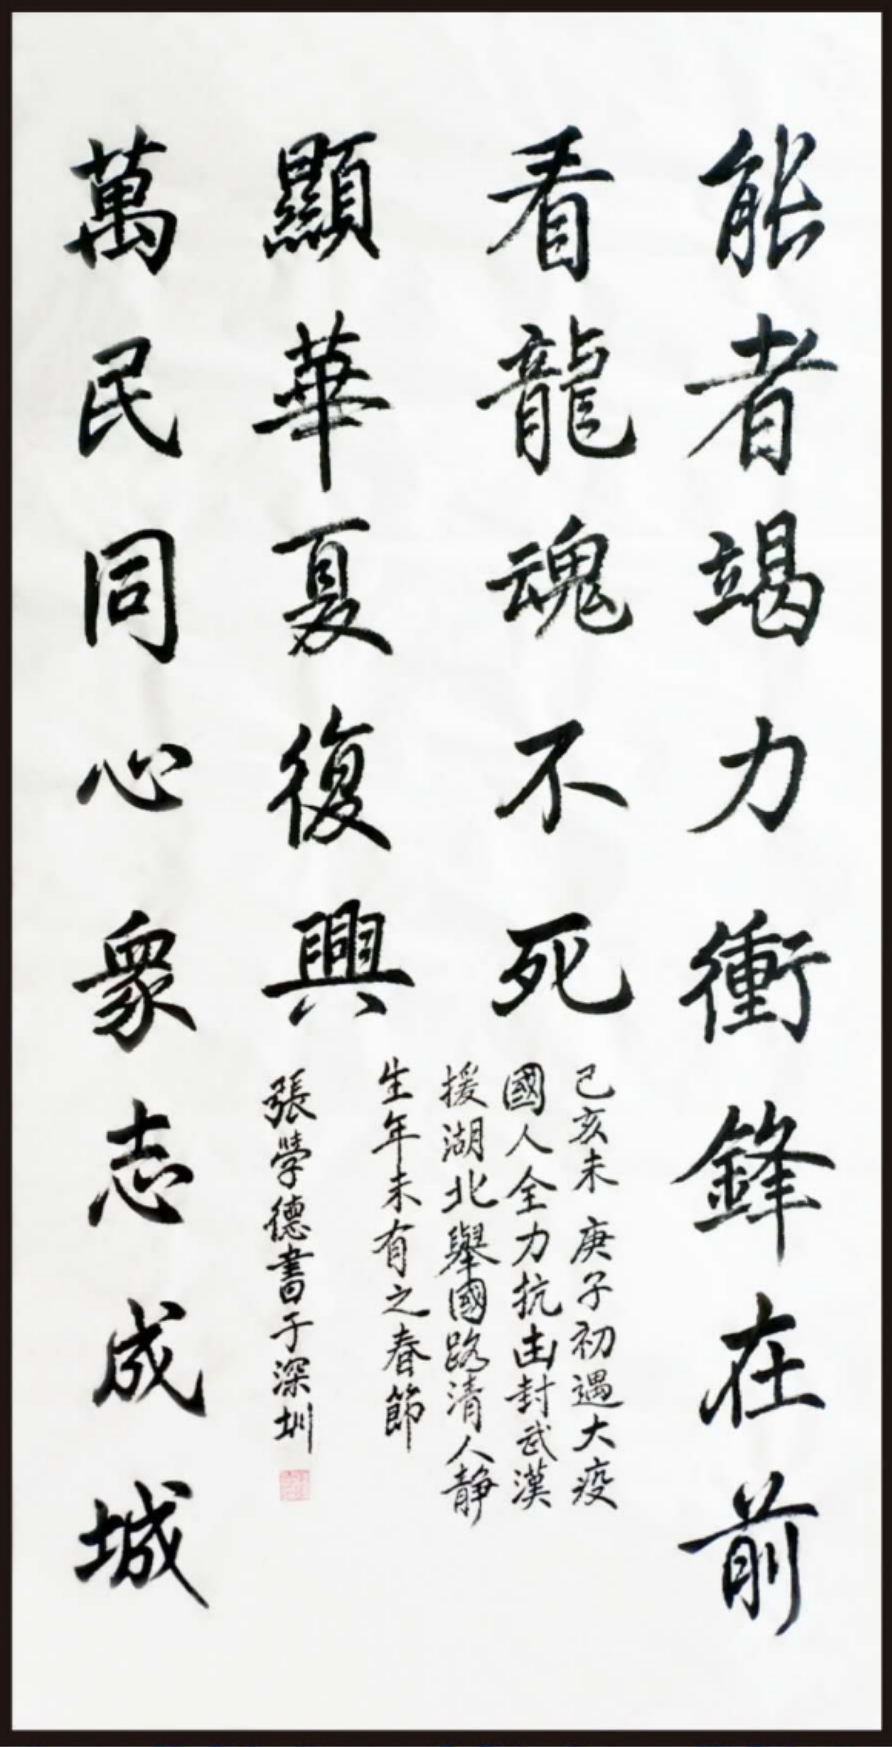 能者竭力衝鋒在前
看龍魂不死
顯華夏復興
萬民同心衆志成城
己亥末庚子初遇大疫
國人全力抗击封武漢
援湖北舉國路清人静
生年未有之春節
張學德書于深圳